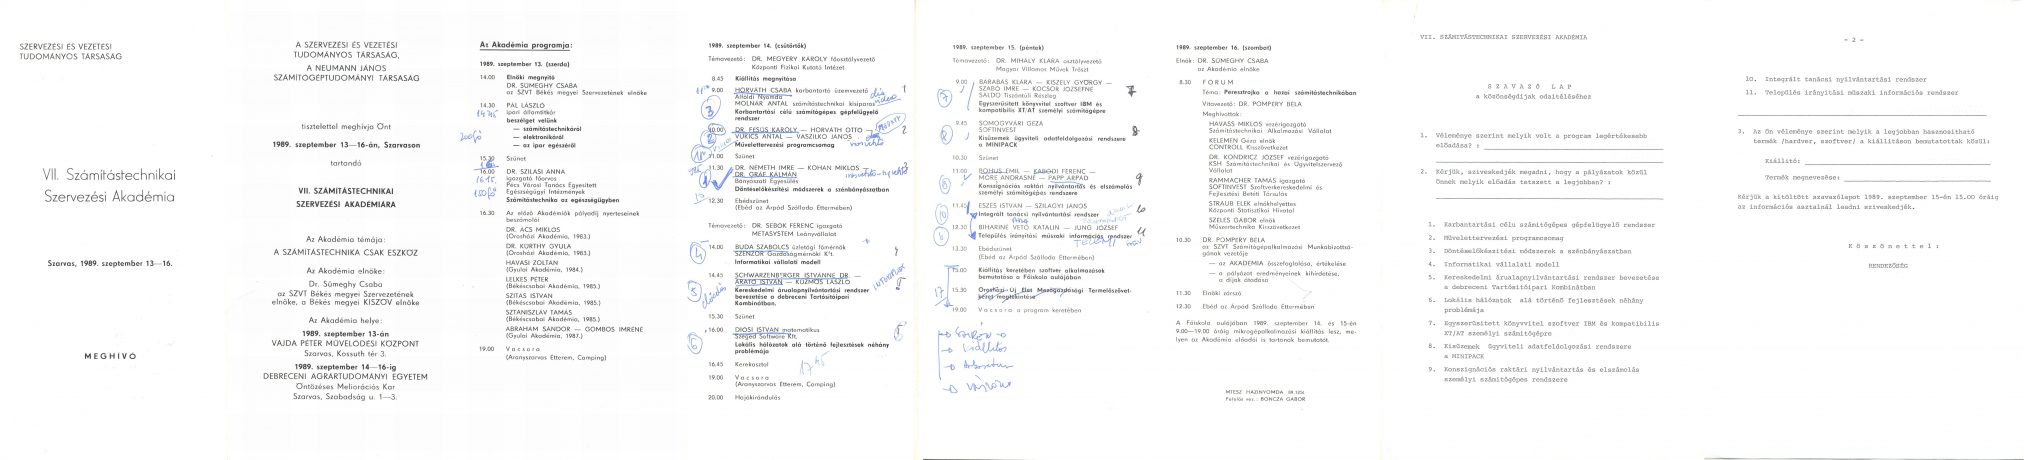 SZERVEZÉSI ÉS VEZETÉSI
TUDOMÁNYOS TÁRSASÁG
VII. Számítástechnikai
Szervezési Akadémia
Szarvas, 1989. szeptember 13—16.
MEGHIVÓ
A SZERVEZÉSI ÉS VEZETÉSI
TUDOMÁNYOS TÁRSASÁG,
A NEUMANN JÁNOS
SZÁMITÓGÉPTUDOMÁNYI TÁRSASÁG
tisztelettel meghívja Önt
1989. szeptember 13—16-án, Szarvason
tartandó
VII. SZÁMITÁSTECHNIKAI
SZERVEZÉSI AKADÉMIÁRA
Az Akadémia témája:
A SZÁMITÁSTECHNIKA CSAK ESZKÖZ
Az Akadémia elnöke:
Dr. Sümeghy Csaba
az SZVT Békés megyei Szervezetének
elnöke, a Békés megyei KISZÖV elnöke
Az Akadémia helye:
1989. szeptember 13-án
VAJDA PÉTER MŰVELŐDÉSI KÖZPONT
Szarvas, Kossuth tér 3.
1989. szeptember 14—16-ig
DEBRECENI AGRÁRTUDOMÁNYI EGYETEM
Öntözéses Meliorációs Kar
Szarvas, Szabadság u. 1—3.
Az Akadémia programja:
1989. szeptember 13. (szerda)
14.00 Elnöki megnyitó
DR. SÜMEGHY CSABA
az SZVT Békés megyei Szervezetének elnöke
14.30 PÁL LÁSZLÓ
14.45 ipari államtitkár
beszélget velünk
— számítástechnikáról
— elektronikáról
— az ipar egészéről
15.30 Szünet
16.00 DR. SZILASI ANNA
16.15 igazgató főorvos
Pécs Városi Tanács Egyesített
Egészségügyi Intézmények
Számítástechnika az egészségügyben
16.30 Az előző Akadémiák pályadíj nyerteseinek
beszámolói
DR. ÁCS MIKLÓS
(Orosházi Akadémia, 1983.)
DR. KÜRTHY GYULA
(Orosházi Akadémia, 1983.)
HAVASI ZOLTÁN
(Gyulai Akadémia, 1984.)
LELKES PÉTER
(Békéscsabai Akadémia, 1985.)
SZITÁS ISTVÁN
(Békéscsabai Akadémia, 1985.)
SZTANISZLÁV TAMÁS
(Békéscsabai Akadémia, 1985.)
ÁBRAHÁM SÁNDOR — GOMBOS IMRÉNÉ
(Gyulai Akadémia, 1987.)
19.00 Vacsora
(Aranyszarvas Étterem, Camping)
1989. szeptember 14. (csütörtök)
Témavezető: DR. MEGYERY KÁROLY főosztályvezető
Központi Fizikai Kutató Intézet
8.45 Kiállítás megnyitása
9.00 HORVÁTH CSABA karbantartó üzemvezető
Alföldi Nyomda
MOLNÁR ANTAL számítástechnikai kisiparos
Karbantartás célu számítógépes gépfelügyelő
rendszer
10.00 DR. FESÜS KÁROLY — HORVÁTH OTTÓ —
VUKICS ANTAL — VASZILKÓ JÁNOS
Művelettervezési programcsomag
11.00 Szünet
11.30 DR. NÉMETH IMRE — KOHÁN MIKLÓS —
DR. GRÁF KÁLMÁN
Bányászati Egyesülés
Döntéselőkészítési módszerek a szénbányászatban
12.30 Ebédszünet
(Ebéd az Árpád Szálloda Éttermében)
Témavezető: DR. SEBŐK FERENC igazgató
METASYSTEM Leányvállalat
14.00 BUDA SZABOLCS üzletági főmérnök
SZENZOR Gazdaságmérnöki K°t.
Informatikai vállalati modell
14.45 SCHWARZENBERGER ISTVÁNNÉ DR. —
ARATÓ ISTVÁN — KUZMOS LÁSZLÓ
Kereskedelmi árualapnyilvántartási rendszer
bevezetése a debreceni Tartósítóipari
Kombinátban.
15.30 Szünet
16.00 DIÓSI ISTVÁN matematikus
Szeged Software Kft.
Lokális hálózatok alá történő fejlesztések néhány
problémája
17.45
16.45 Kerekasztal
19.00 Vacsora
(Aranyszarvas Étterem, Camping)
20.00 Hajókirándulás
1989. szeptember 15. (péntek)
Témavezető: DR. MIHÁLY KLÁRA osztályvezető
Magyar Villamos Művek Tröszt
9.00 BARABÁS KLÁRA — KISZELY GYÖRGY —
SZABÓ IMRE — KOCSOR JÓZSEFNÉ
SALDO Tiszántúli Részleg
Egyszerüsített könyvitel szoftver IBM és
kompatibilis XT/AT személyi számítógépre
9.45 SOMOGYVÁRI GÉZA
SOFTINVEST
Kisüzemek ügyviteli adatfeldolgozási rendszere
a MINIPACK
10.30 Szünet
11.00 BOHUS EMIL — KABÓDI FERENC —
MÓRE ANDRÁSNÉ — PAPP ÁRPÁD
Konszignációs raktári nyilvántartás és elszámolás
személyi számítógépes rendszere
11.45 ESZES ISTVÁN — SZILÁGYI JÁNOS
Integrált tanácsi nyilvántartási rendszer
12.30 BIHARINÉ VETŐ KATALIN — JUNG JÓZSEF
Település irányítási műszaki információs rendszer
13.30 Ebédszünet
(Ebéd az Árpád Szálloda Éttermében)
15.00 Kiállítás keretében szoftver alkalmazások
bemutatása a Főiskola aulájában
15.30 Orosházi Új Élet Mezőgazdasági Termelőszövet-
kezet megtekintése
19.00 Vacsora a program keretében
1989. szeptember 16. (szombat)
Elnök: DR. SÜMEGHY CSABA
az Akadémia elnöke
8.30 FÓRUM
Téma: Peresztrojka a hazai számítástechnikában
Vitavezető: DR. POMPÉRY BÉLA
Meghívottak:
HAVASS MIKLÓS vezérigazgató
Számítástechnikai Alkalmazási Vállalat
KELEMEN Géza elnök
CONTROLL Kisszövetkezet
DR. KONDRICZ JÓZSEF vezérigazgató
KSH Számítástechnikai és Ügyvitelszervező
Vállalat
RAMMACHER TAMÁS igazgató
SOFTINVEST Szoftverkereskedelmi és
Fejlesztési Betéti Társulás
STRAUB ELEK elnökhelyettes
Központi Statisztikai Hivatal
SZELES GÁBOR elnök
Műszertechnika Kisszövetkezet
10.30 DR. POMPÉRY BÉLA
az SZVT Számítógépalkalmazási Munkabizottsá-
gának vezetője
— az AKADÉMIA összefoglalása, értékelése
— a pályázat eredményeinek kihirdetése,
a díjak átadása
11.30 Elnöki zárszó
12.30 Ebéd az Árpád Szálloda Éttermében
A Főiskola aulájában 1989. szeptember 14. és 15-én
9.00—19.00 óráig mikrogépalkalmazási kiállítás lesz, me-
lyen az Akadémia előadói is tartanak bemutatót.
MTESZ HÁZINYOMDA 89.1206
Felelős vez.: BONCZA GÁBOR
VII. SZÁMITÁSTECHNIKAI SZERVEZÉSI AKADÉMIA
SZAVAZÓ LAP
a közönségdíjak odaítéléséhez
1. Véleménye szerint melyik volt a program legértékesebb
előadása? :
2. Kérjük, sziveskedjék megadni, hogy a pályázatok közül
Önnek melyik előadás tetszett a legjobban? :
1. Karbantartási célu számítógépes gépfelügyelő rendszer
2. Művelettervezési programcsomag
3. Döntéselőkészítési módszerek a szénbányászatban
4. Informatikai vállalati modell
5. Kereskedelmi árualapnyilvántartási rendszer bevezetése
a debreceni Tartósitóipari Kombinátban
6. Lokális hálózatok alá történő fejlesztések néhány
problémája
7. Egyszerüsített könyvvitel szoftver IBM és kompatibilis
XT/AT személyi számítógépre
8. Kisüzemek ügyviteli adatfeldolgozási rendszere
a MINIPACK
9. Konszignációs raktári nyilvántartás és elszámolás
személyi számítógépes rendszere
- 2 -
10. Integrált tanácsi nyilvántartási rendszer
11. Település irányítási műszaki információs rendszer
3. Az Ön véleménye szerint melyik a legjobban hasznosítható
termék /hardver, szoftver/ a kiállításon bemutatottak közül:
Kiállító:
Termék megnevezése:
Kérjük a kitöltött szavazólapot 1989. szeptember 15-én 15.00 óráig
az információs asztalnál leadni sziveskedjék.
Köszönettel:
RENDEZŐSÉG